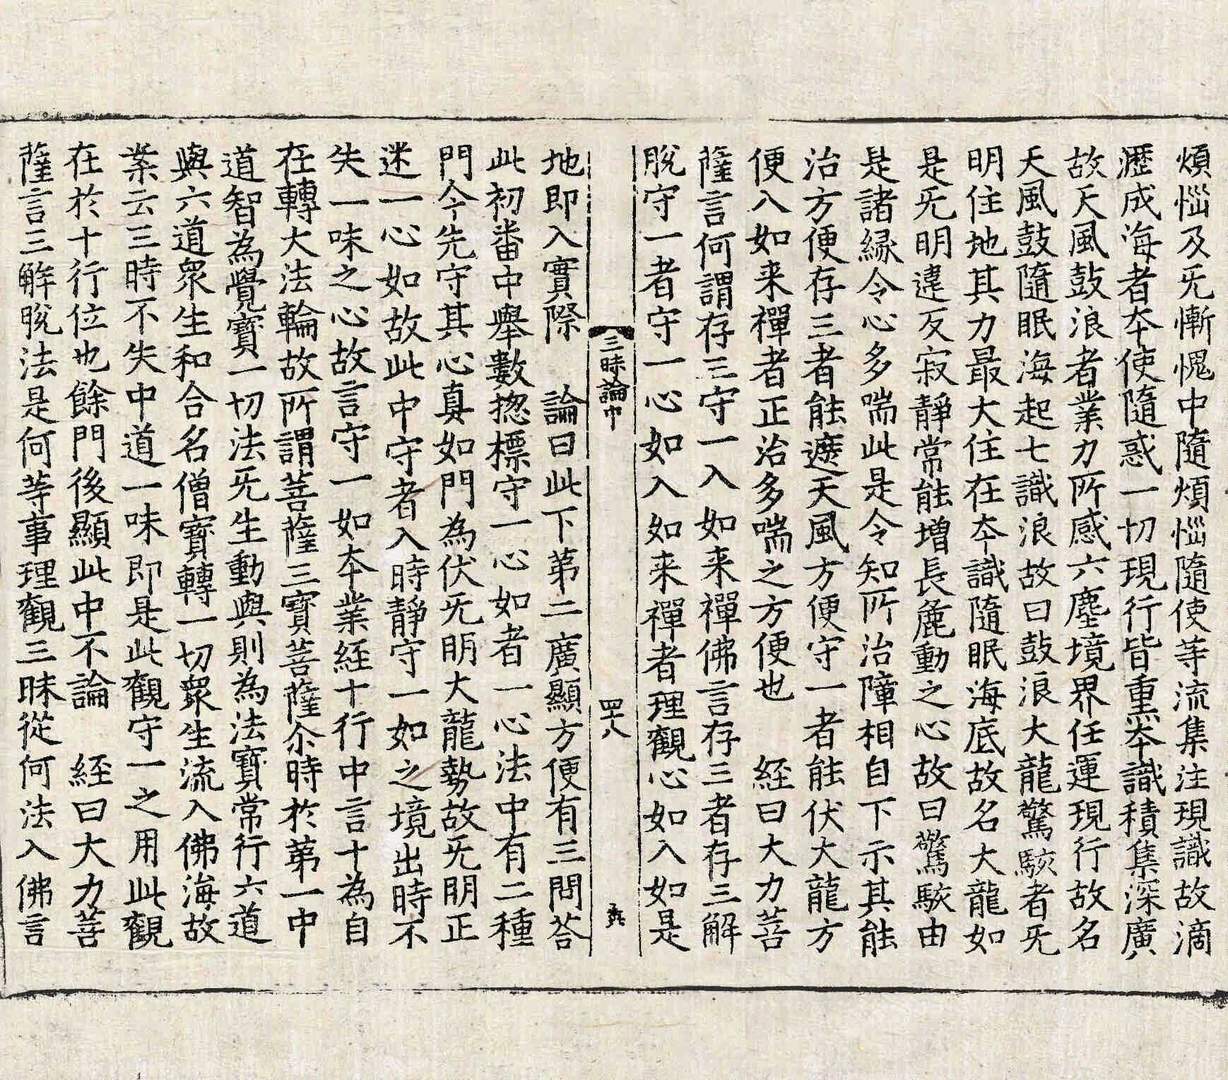 煩惱及旡慚愧中隨煩惱隨使等流集注現識故滴
瀝成海者夲使隨惑一切現行皆熏夲識積集深廣
故天風鼓浪者業力所感六塵境界任運現行故名
天風鼓隨眠海起七識浪故曰鼓浪大龍驚駭者旡
明住地其力最大住在夲識隨眠海底故名大龍如
是旡明違反寂靜常能增長麁動之心故曰驚駭由
是諸緣令心多喘此是令知所治障相自下示其能
治方便存三者能遮天風方便守一者能伏大龍方
便入如来禪者正治多喘之方便也　經曰大力菩
薩言何謂存三守一入如来禪佛言存三者存三解
脫守一者守一心如入如来禪者理觀心如入如是
三昧論中　四十八
地即入實際　論曰此下第二廣顯方便有三問荅
此初番中舉數揔標守一心如者一心法中有二種
門今先守其心真如門為伏旡明大龍勢故旡明正
迷一心如故此中守者入時靜守一如之境出時不
失一味之心故言守一如夲業経十行中言十為自
在轉大法輪故所謂菩薩三寶菩薩尒時於第一中
道智為覺寶一切法旡生動與則為法寶常行六道
與六道衆生和合名僧寶轉一切衆生流入佛海故
案云三時不失中道一味即是此觀守一之用此觀
在於十行位也餘門後顯此中不論　経曰大力菩
薩言三解脫法是何等事理觀三昧從何法入佛言